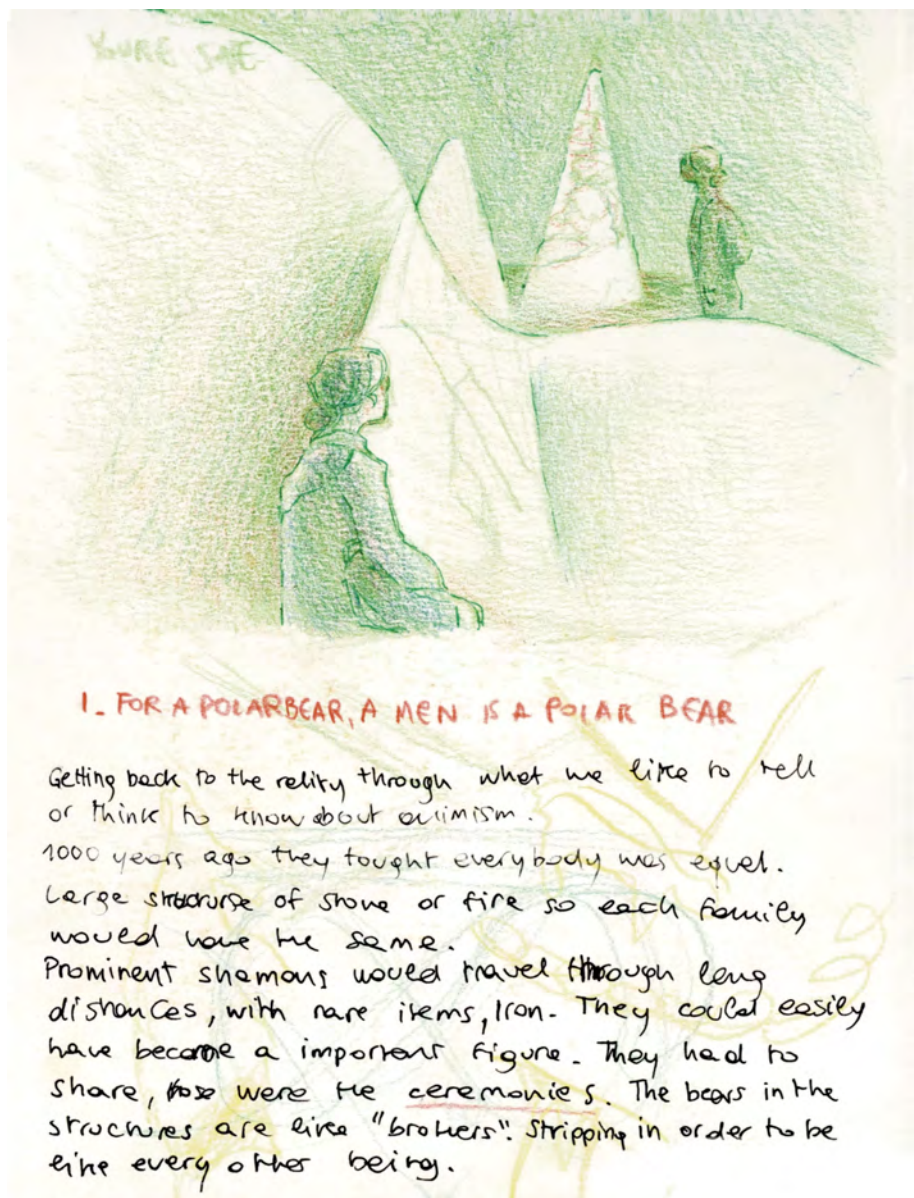 YOURE SAFE
1_ FOR A POLARBEAR, A MEN IS A POLAR BEAR
Getting back to the relity through what we like to tell
or think to know about animism.
1000 years ago they tought everybody was equel.
Large structurse of stone or fire so each family
would have the same.
Prominent shamans would travel through long
distances, with rare items, Iron. They could easily
have become a important figure. They had to
share, those were the ceremonies. The bears in the
structures are like "brothers". Stripping in order to be
like every other being.